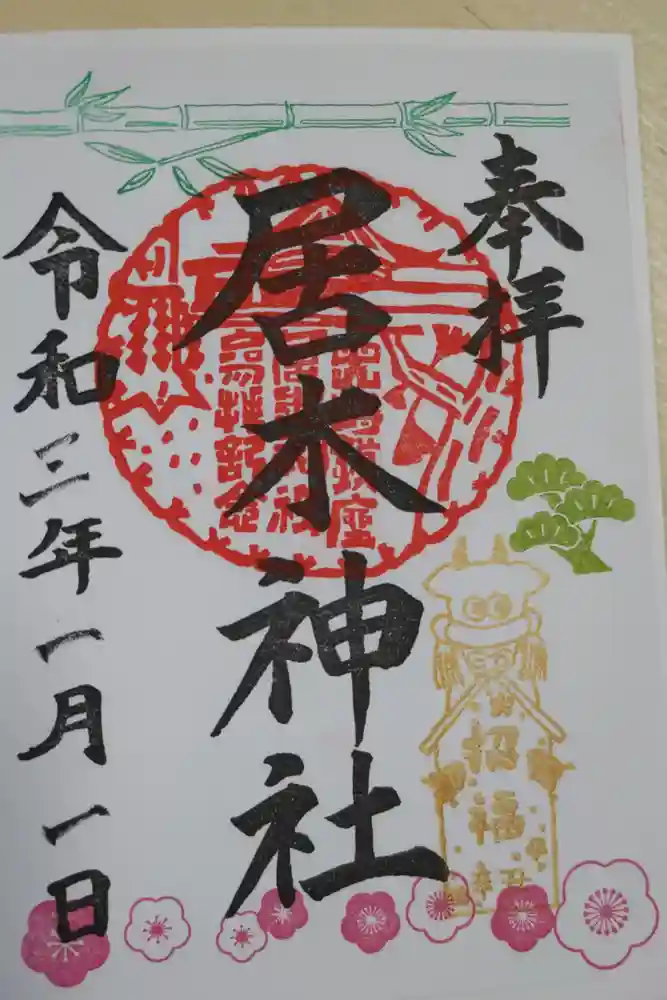 奉拝
居木神社
令和三年一月一日
招福